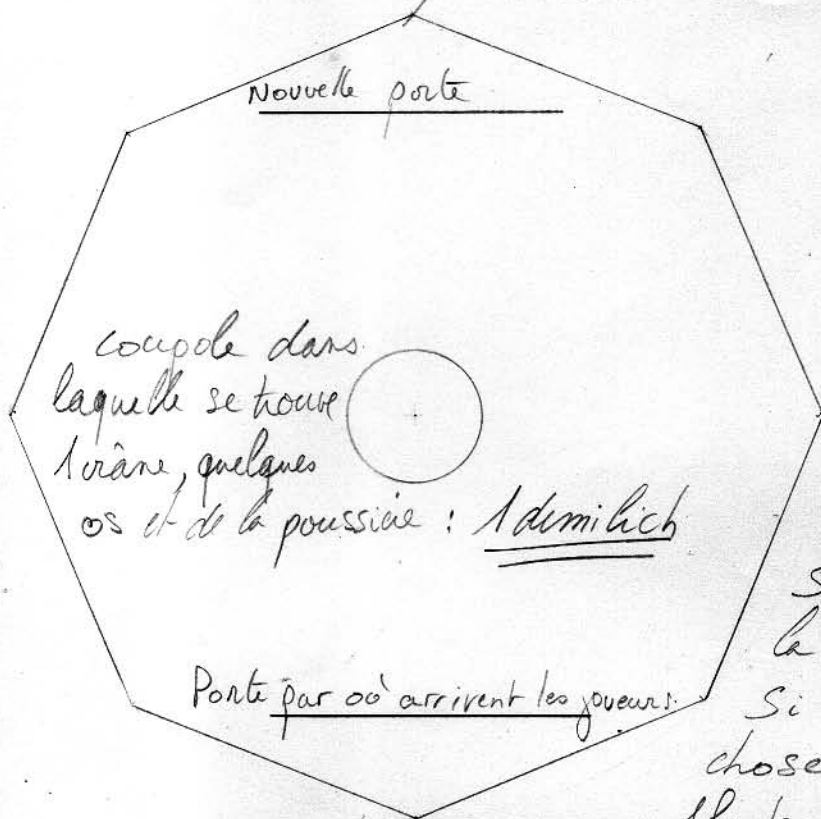 Nouvelle porte
coupole dans
laquelle se trouve
1 crâne, quelques
os et de la poussière : 1 demilich
Porte par où arrivent les joueurs.
la
Si
chose